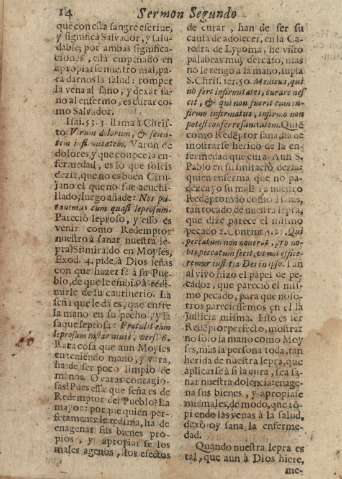 14
Sermon Segundo
que con ella sangre escrive,
y significa Salvador, y salu-
dable; por ambas significa-
ciones, està empeñado en
apropiarse nuestro mal, pa-
ra darnos la salud: romper
la vena al sano, y dexar sa-
no al enfermo, es curar co-
mo Salvador.
Isai. 53. llama à Chris-
to: Virum dolorum, & scien-
tem infirmitatem. Varon de
dolores, y que conoce la en-
fermedad, es lo que
dezir, que no es buen Ciru-
jano el que no fue acuchi-
llado; luego añade: Nos pu-
tavimus eum quasi leprosum.
Pareciò leproso, y esso es
venir como Redemptor
nuestro à sanar nuestra le-
pra? Senti raldo en Moysès,
Exod. 4. pide, à Dios señas
con que hazer fè à su Pue-
blo, de que le embia à redi-
mirle de su cautiverio. La
seña que le dà es, que entre
la mano en su pecho, y la
saque leprosa: Protulit eam
leprosam instar nivis, vers. 6.
Rara cosa que aun Moyses
en teniendo mano, y vara,
ha de ser poco limpio de
manos. O varas contagio-
sas! Pues essa que seña es de
Redemptor del Pueblo? La
mayor: porque quien per-
fectamente redima, ha de
enagenar sus bienes pro-
pios, y apropiarse los
males agenos, los efectos
de curar, han de ser su
causa de adolecer, en la Ca-
tedra de Lypoma, he visto
palabras muy
no le tengo à la mano, supla
S. Chrisl. ser. 50. Medicus, qui
no fert infirmitates, curare nes-
cit, & qui non fuerit cum in-
firmo infirmatus, infirmo non
potest conferre sanitatem. Quie
como Redeptor sana, ha de
mostrarse herico de la en-
fermedad que cura. Aun S.
Pablo en su imitacion dezia:
quien enferma que no pa-
dezca yo su mal? La nuestro
Redeptor viviò como
tan tocado de nuestra lepra,
que dize parece el mismo
pecado 2. Corinth. 5. 21. Qui
peccatum non noverat, pro no-
bis peccatum fecit, ut nos effice-
remur justitia Dei in ipso. Tan
al vivo hizo el papel de pe-
cador, que pareciò el mis-
mo pecado, para que noso-
tros pareciessemos en el la
justicia misma. Esto es ser
Redeptor perfecto, mostrar
no solo la mano como Moy-
ses, mas la persona toda, tan
herida de nuestra lepra, que
aplica se à si la cura, sea sa-
nar nuestra dolencia: enage-
na sus bienes, y apropiase
mis males, de modo, que rõ-
piendo las venas à la salud,
dexò oy sana la enferme-
dad.
Quando nuestra lepra es
tal, que aun à Dios hiere,
me-